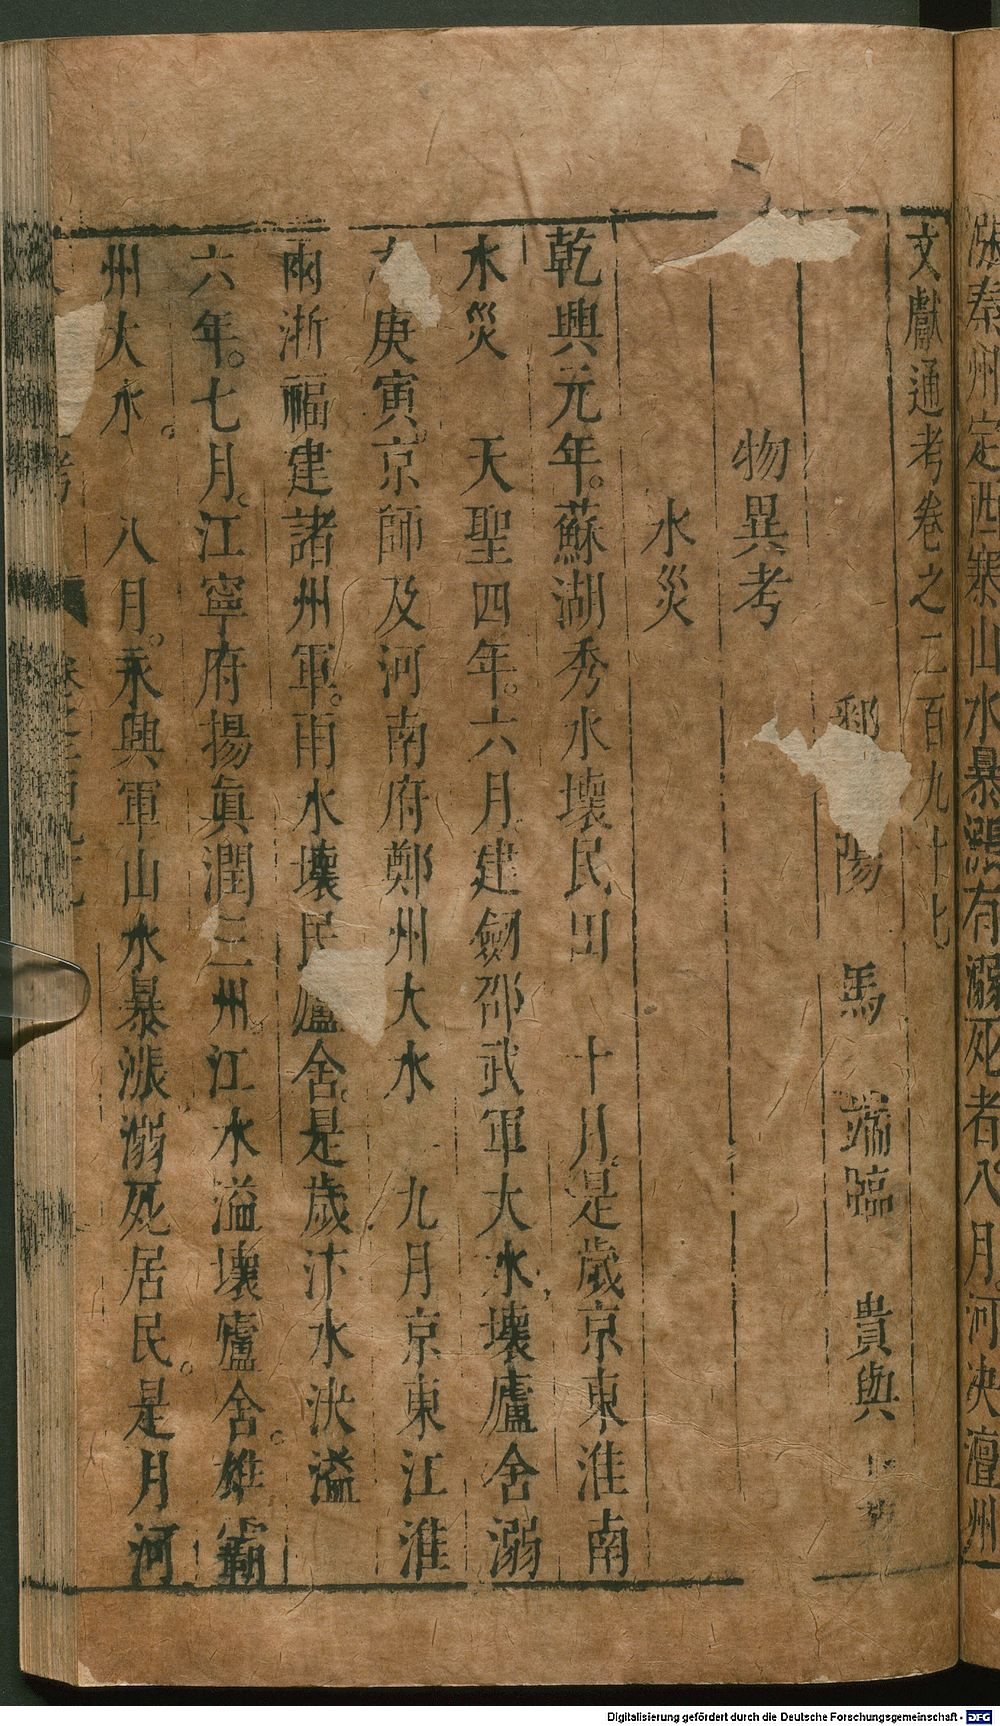 漲秦州定西寨山水暴漲有溺死者八月河决澶州
文獻通考卷之二百九十七
鄱陽 馬 端臨 貴與
物異考
水災
乾興元年。蘇湖秀水壞民田 十月是歲京東淮南
水災 天聖四年。六月建劒邵武軍大水壞廬舍溺
庚寅京師及河南府鄭州大水 九月京東江淮
兩浙福建諸州軍。雨水壞民廬舍是歲汴水决溢
六年。七月。江寧府揚眞潤三州。江水溢壞廬舍。雄霸
州大水。 八月。永興軍山水暴漲溺死居民。是月河
Digitalisierung gefördert durch die Deutsche Forschungsgemeinschaft - DFG